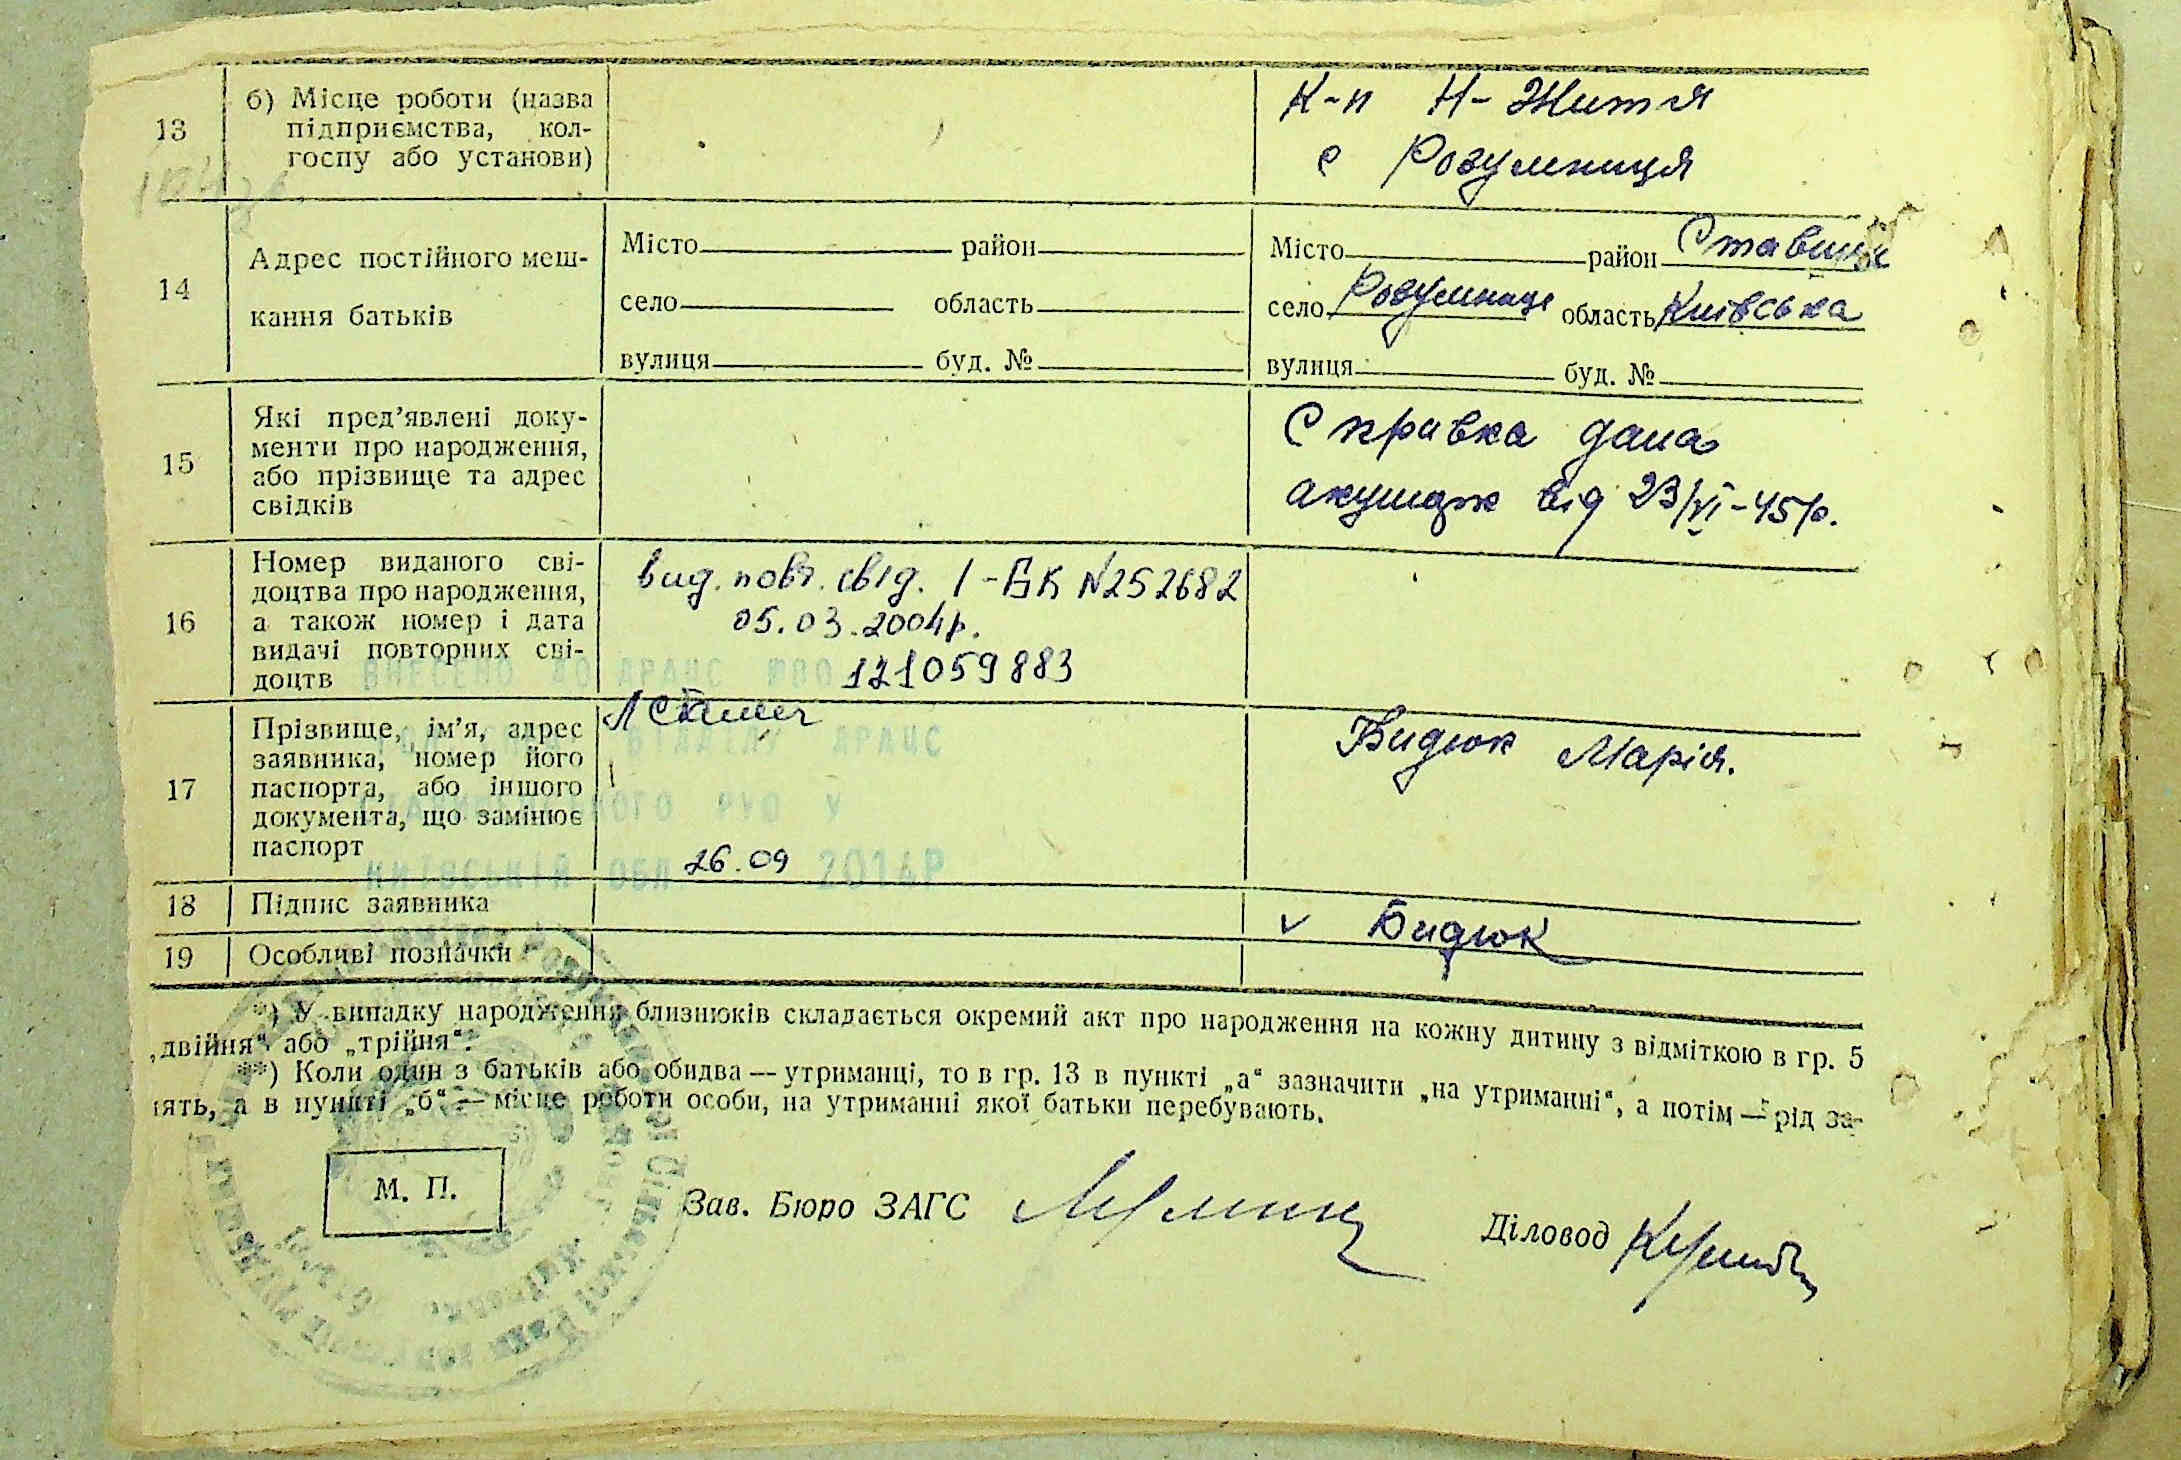 13
б) Місце роботи (назва
підприємства, кол-
госпу або установи)
К-п Н-Життя
с Розумниця
14
Адрес постійного меш-
кання батьків
Місто район
село область
вулиця буд. №
Місто район Ставищ
село Розумниця область Київська
вулиця буд. №
15
Які пред’явлені доку-
менти про народження,
або прізвище та адрес
свідків
Справка дана
від 23/VI-45р.
16
Номер виданого сві-
доцтва про народження,
а також номер і дата
видачі повторних сві-
доцтв
вид. повт. свід. І-БК №252682
05.03.2004р.
ВНЕСЕНО ДО ДРАЦС 121059883
17
Прізвище, ім’я, адрес
заявника, номер його
паспорта, або іншого
документа, що замінює
паспорт
ВІДДІЛУ ДРАЦС
РУЮ У
КИЇВСЬКІЙ ОБЛ 26.09 2014Р
Бидюк Марія.
18
Підпис заявника
v Бидюк
19
Особливі позначки
*) У випадку народження близнюків складається окремий акт про народження на кожну дитину з відміткою в гр. 5
„двійня“ або „трійня“.
**) Коли один з батьків або обидва — утриманці, то в гр. 13 в пункті „а“ зазначити „на утриманні“, а потім — рід за-
нять, а в пункті „б“ — місце роботи особи, на утриманні якої батьки перебувають.
М. П.
Зав. Бюро ЗАГС
Діловод